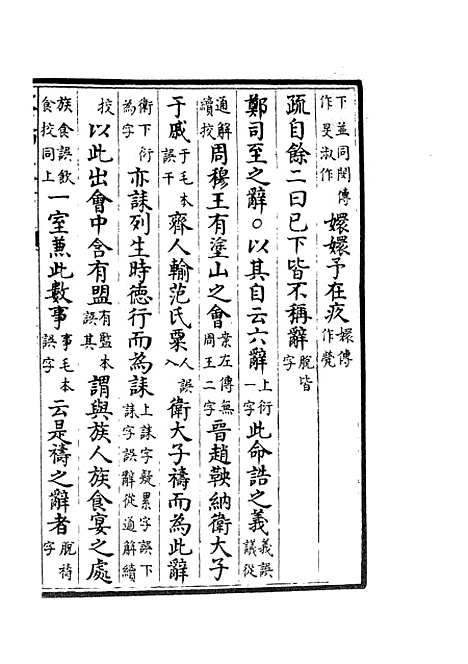 下並同閔傳作旻淑作嬛嬛予在疚嬛傳作煢
疏自餘二曰已下皆不稱辭脫皆字
鄭司至之辭○以其自云六辭上衍一字此命誥之義義誤議從
通解續校周穆王有塗山之會案左傳無周王二字晉趙鞅納衛大子
于戚于毛本誤干齊人輸范氏粟人誤入衛大子禱而為此辭
衛下衍為字亦誄列生時德行而為誄上誄字疑累字誤下誄字誤辭從通解續
校以此出會中含有盟有監本誤其謂與族人族食宴之處
族食誤飲食校同上一室蕙此數事事毛本誤字云是禱之辭者脫禱字